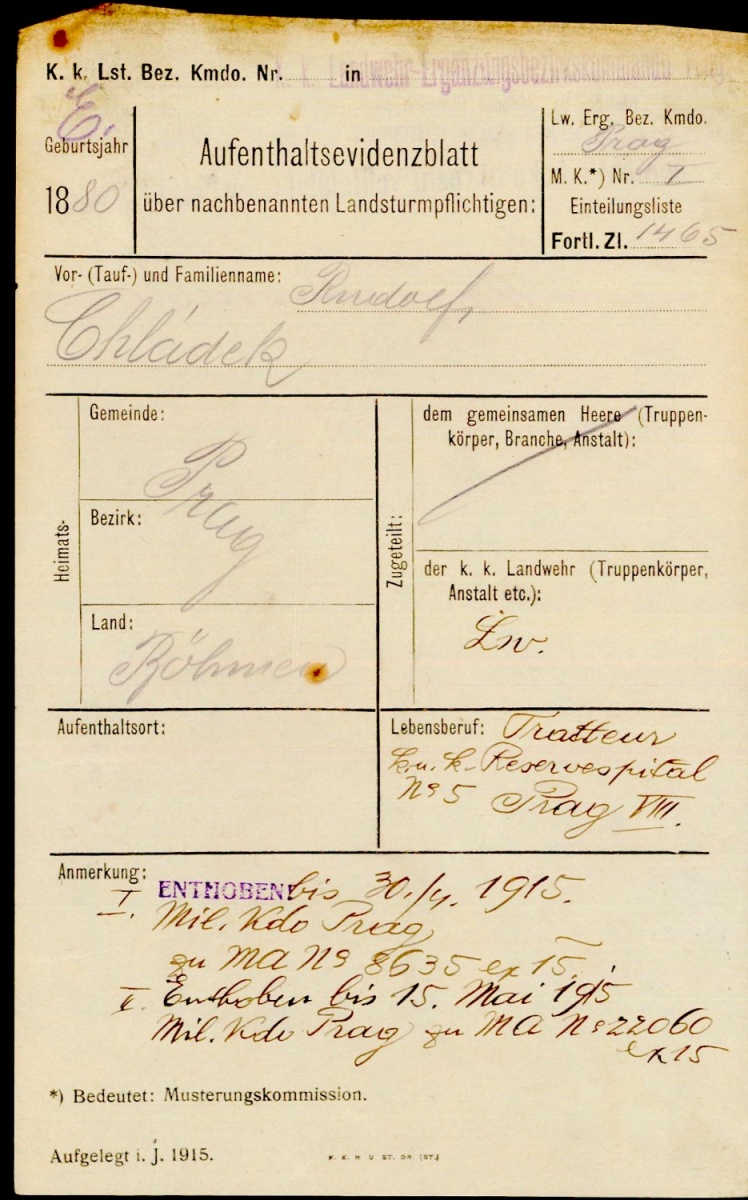 K. k. Lst. Bez. Kmdo. Nr. in k. k. Landwehr-Ergänzungsbezirkskommando Prag
E.
Geburtsjahr
1880
Aufenthaltsevidenzblatt
über nachbenannten Landsturmpflichtigen:
Lw. Erg. Bez. Kmdo.
Prag
M. K.*) Nr. I
Einteilungsliste
Fortl. Zl. 1465
Vor- (Tauf-) und Familienname: Rudolf,
Chládek
Heimats-
Gemeinde:
Prag
Bezirk:
Land:
Böhmen
Zugeteilt:
dem gemeinsamen Heere (Truppen-
körper, Branche, Anstalt):
der k. k. Landwehr (Truppenkörper,
Anstalt etc.):
Lw.
Aufenthaltsort:
Lebensberuf: Tratteur
k. u. k. Reservespital
No 5 Prag VIII.
Anmerkung:
I. ENTHOBEN bis 30./4. 1915.
Mil. Kdo Prag
zu MA No 8635 ex 15.
II. Enthoben bis 15. Mai 1915
Mil. Kdo Prag zu MA No 22060
ex 15
*) Bedeutet: Musterungskommission.
Aufgelegt i. J. 1915.
K. K. H U ST. DR. (ST.)